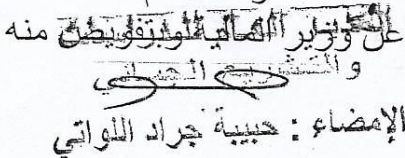 عن وزير المالية وبتفويض منه
والتشريع الجبائي
الإمضاء : حبيبة جراد اللواتي